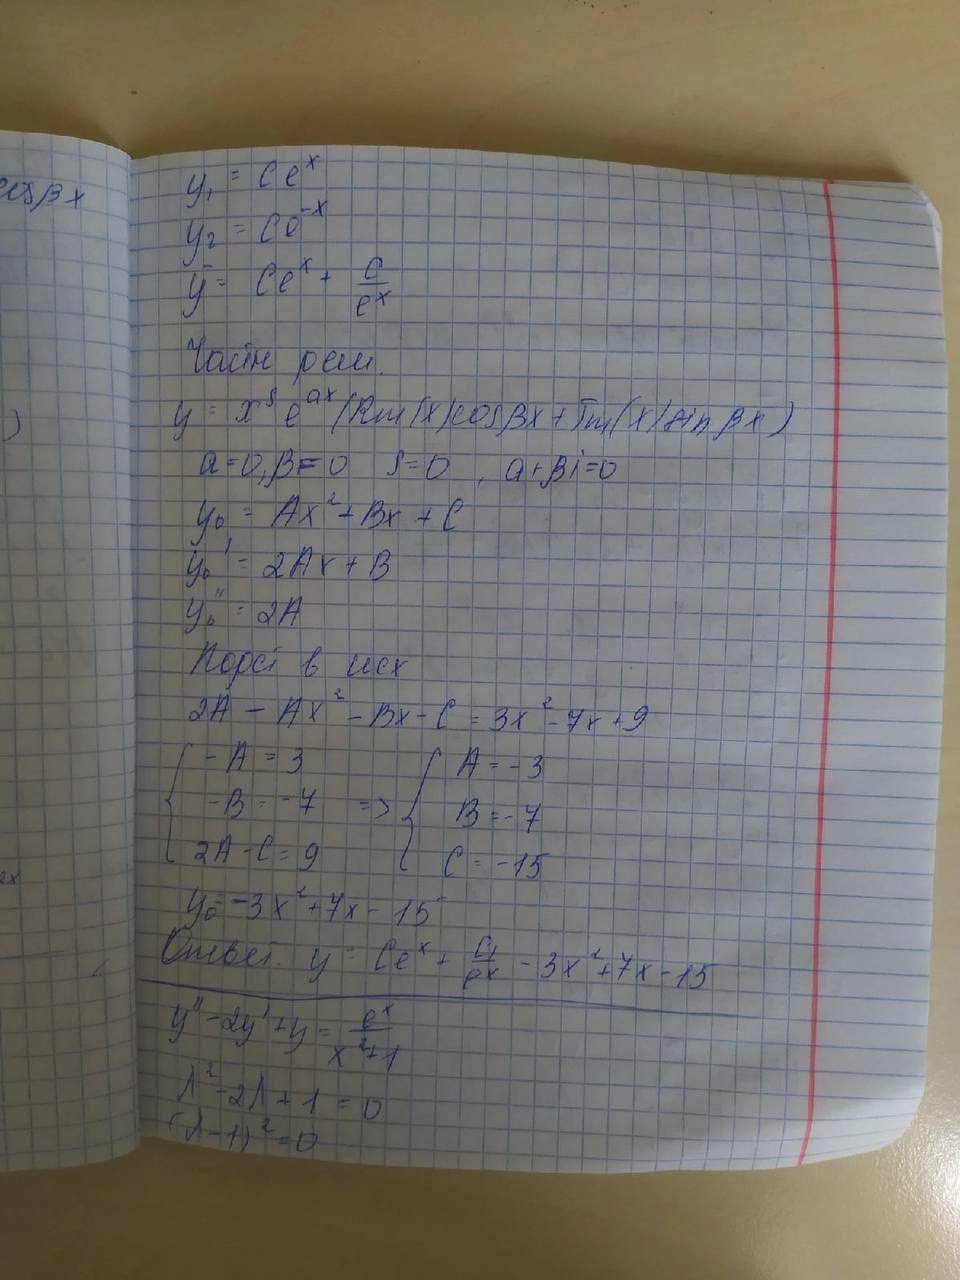 cosβx
)
ех
y₁ = Ce^x
y₂ = Ce^-x
ȳ = Ce^x + C/e^x
Частн реш.
y = x^s e^ax (Rm(x)cosβx + Tm(x)sinβx)
a=0, β=0 S=0, a+βi=0
y₀ = Ax² + Bx + C
y₀' = 2Ax + B
y₀'' = 2A
Подст в исх
2A - Ax² - Bx - C = 3x² - 7x + 9
{ -A = 3 { A = -3
-B = -7 => B = -7
2A - C = 9 C = -15
y₀ = -3x² + 7x - 15
Ответ. y = Ce^x + C₁/e^x - 3x² + 7x - 15
y'' - 2y' + y = e^x/x²+1
λ² - 2λ + 1 = 0
(λ-1)² = 0